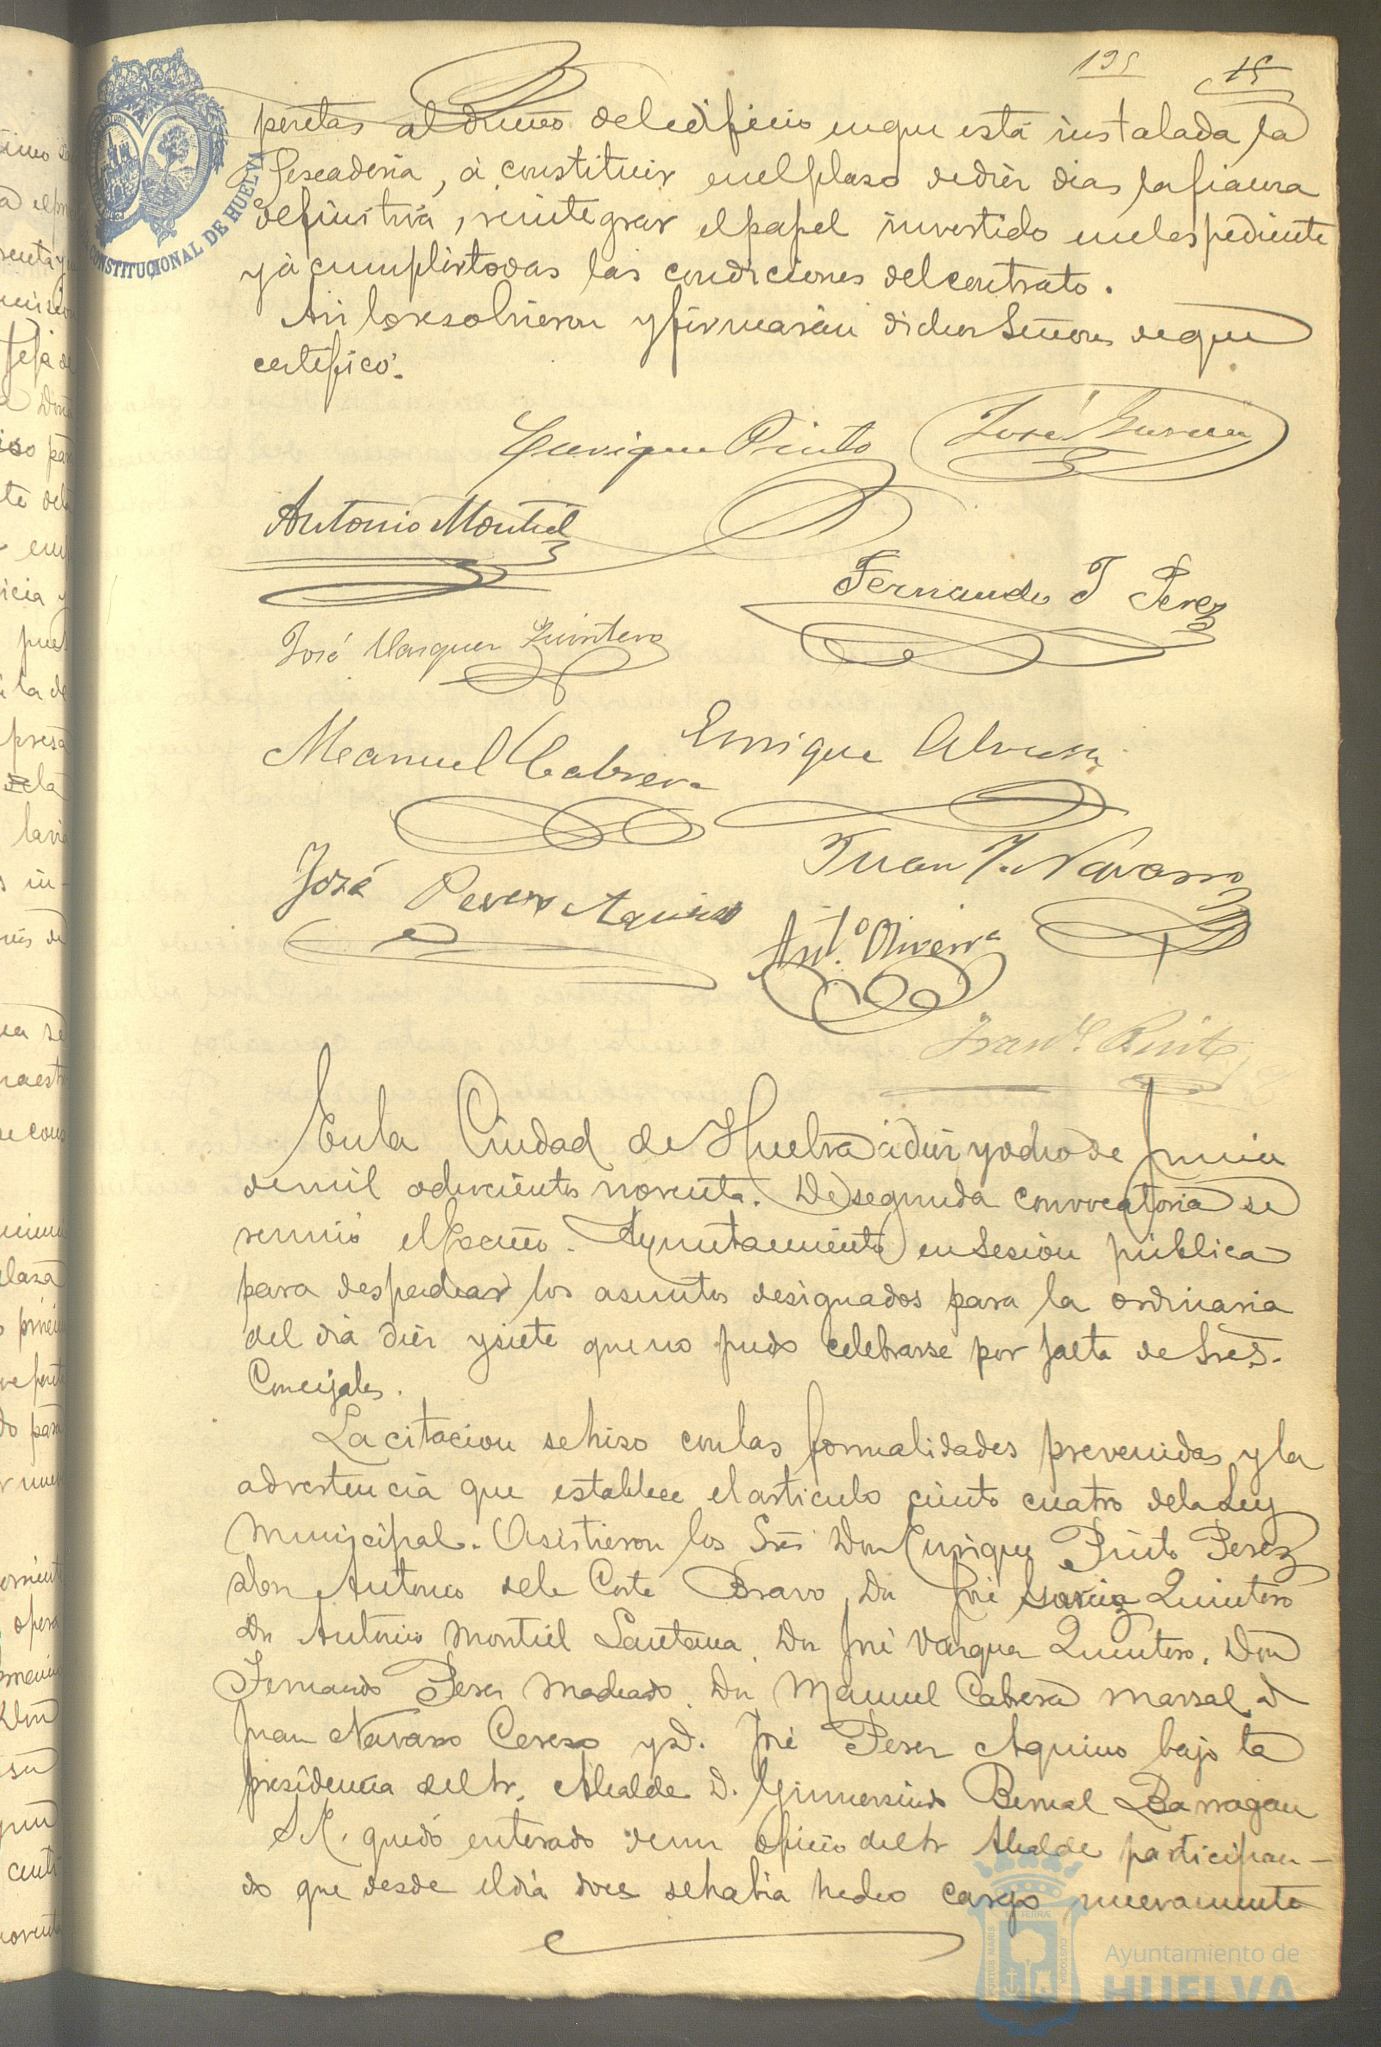 195 15
pesetas al dueño del edificio en que está instalada la
Pescaderia, á constituir en el plaso de diez dias la fianza
definitiva, reintegrar el papel invertido en el espediente
y á cumplir todas las condiciones del contrato.
Asi lo resolvieron y firmarán dichos Señores de que
certifico.
Enrique Pinto José Garcia
Antonio Montiel
Fernando T Perez
José Vazquez Quintero
Manuel Cabrera Enrique
José Perez Aquino Juan J. Navarro
Ant.º Oliveira
Pinto
En la Ciudad de Huelva á diez y ocho de Junio
de mil ochocientos noventa. De segunda convocatoria se
reunió el Excmo. Ayuntamiento en Sesion pública
para despachar los asuntos designados para la ordinaria
del dia diez y siete que no pudo celebrarse por falta de Sres.
Concejales.
La citacion se hiso con las formalidades prevenidas y la
advertencia que establece el articulo ciento cuatro de la Ley
Municipal. Asistieron los Sres Don Enrique Pinto Perez
Don Antonio de la Corte Bravo, Dn José Garcia Quintero
Dn Antonio Montiel Santana, Dn José Vazquez Quintero, Don
Fernando Perez Machado, Dn Manuel Cabrera Marsal, d
Juan Navarro Cereso y d. José Perez Aquino bajo la
presidencia del Sr. Alcalde D. Gumersindo Bernal Barragan
S.E. quedó enterado de un oficio del Sr Alcalde participan-
do que desde el dia doce se habia hecho cargo nuevamente
CONSTITUCIONAL DE HUELVA
PORTUS MARIS ET TERRAE CUSTODIA
Ayuntamiento de
HUELVA